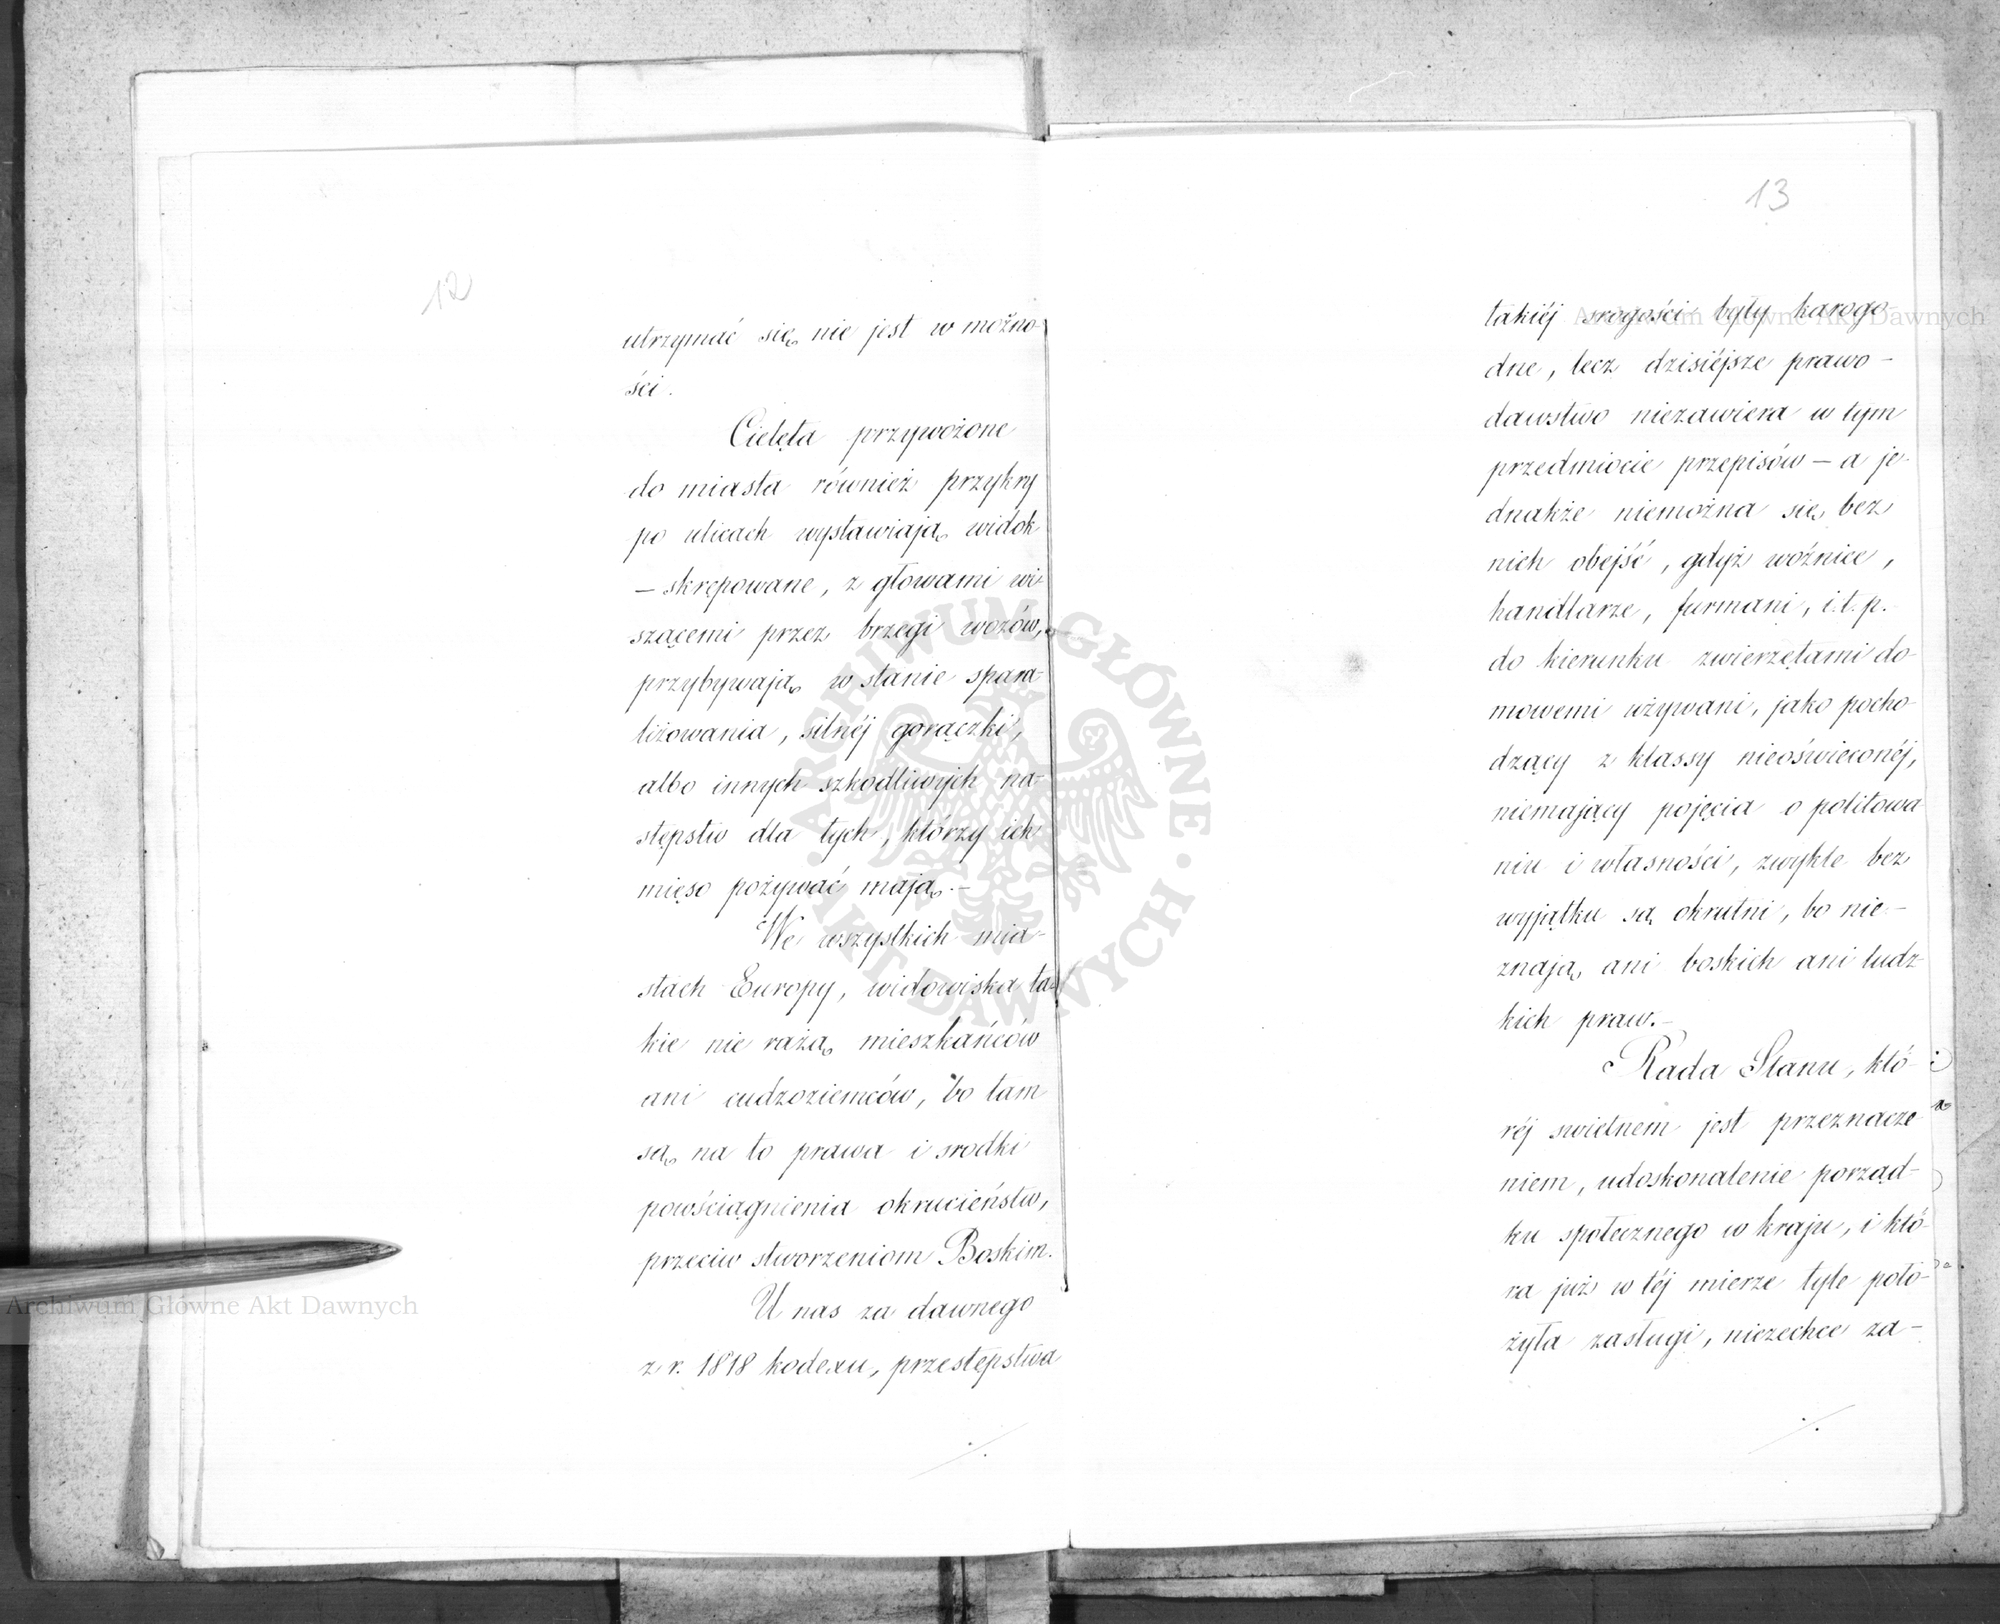 12
utrzymać się nie jest w możno-
ści.
Cielęta przywożone
do miasta również przykry
po ulicach wystawiają widok
— skrępowane, z głowami wi-
szącemi przez brzegi wozów,
przybywają w stanie spara-
liżowania, silnéj gorączki,
albo innych szkodliwych na-
stępstw dla tych, którzy ich
mięso pożywać mają.—
We wszystkich mia-
stach Europy, widowiska ta-
kie nie rażą mieszkańców
ani cudzoziemców, bo tam
są na to prawa i srodki
powściągnienia okrucieństw,
przeciw stworzeniom Boskim.
U nas za dawnego
z r. 1818 kodexu, przestępstwa
./.
13
takiéj srogości były karogo-
dne, lecz dzisiéjsze prawo-
dawstwo niezawiera w tym
przedmiocie przepisów — a je-
dnakże niemożna się bez
nich obejść, gdyż woźnice,
handlarze, furmani, i.t.p.
do kierunku zwierzętami do-
mowemi używani, jako pocho-
dzący z klassy nieoświeconéj,
niemający pojęcia o politowa
niu i własności, zwykle bez
wyjątku są okrutni, bo nie-
znają ani boskich ani ludz-
kich praw.—
Rada Stanu, któ-
réj swietnem jest przeznacze-
niem, udoskonalenie porząd-
ku społecznego w kraju, i któ-
ra już w téj mierze tyle poło-
żyła zasługi, niezechce za-
./.
ARCHIWUM GŁÓWNE · AKT DAWNYCH ·
Archiwum Główne Akt Dawnych
Archiwum Główne Akt Dawnych